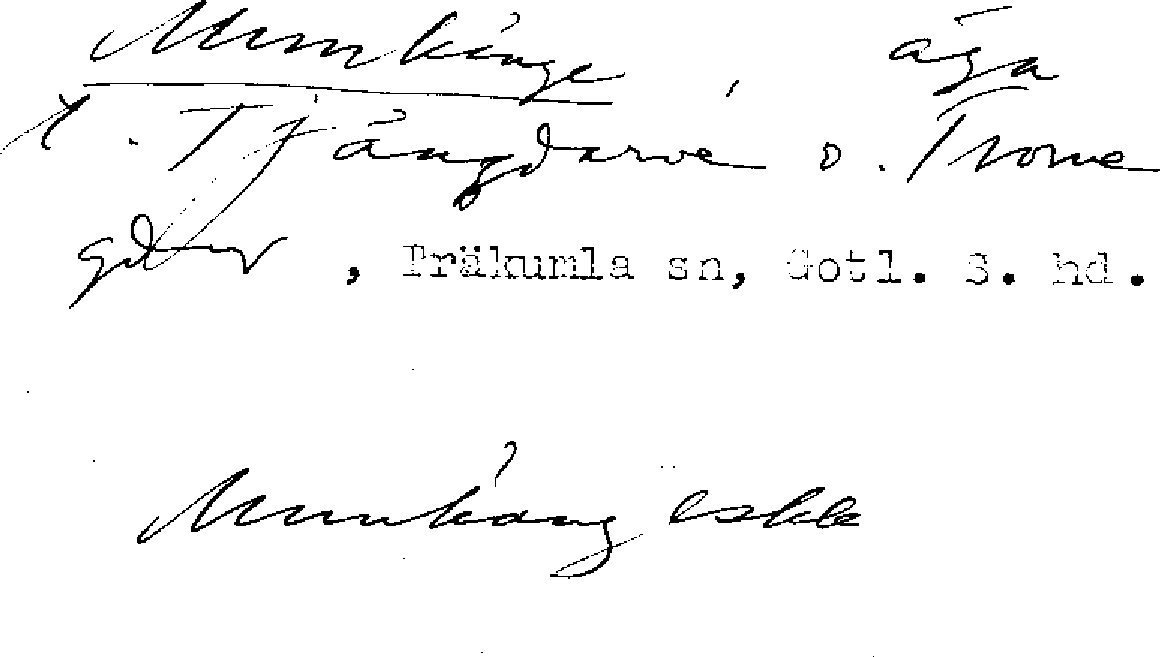 Munkänge, äga
t. Tjängdarve o. Trome
gdar, Träkumla sn, Gotl. S. hd.
Munkäng eskk